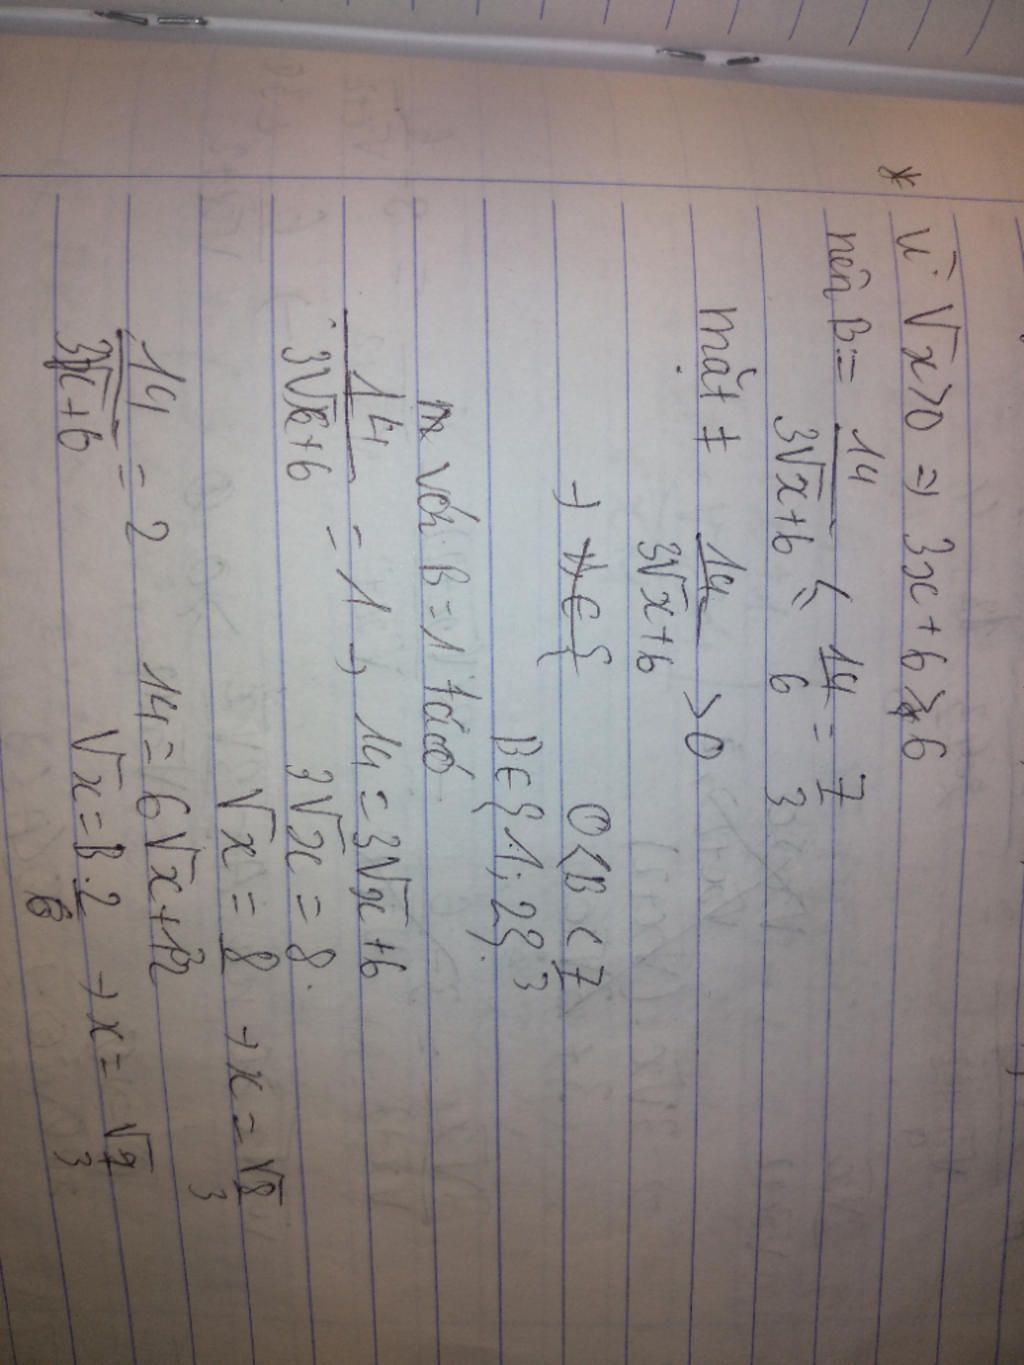 * Vì √x > 0 ⇒ 3x + 6 ≥ 6
nên B = 14/(3√x+6) ≤ 14/6 = 7/3
mặt ≠ 14/(3√x+6) > 0
→ 0 < B < 7/3
B ∈ {1; 2}.
với B = 1 ta có
14/(3√x+6) = 1 → 14 = 3√x + 6
3√x = 8.
√x = 8/3 → x = √8/3
14/(3√x+6) = 2 14 = 6√x + 12
√x = 2/6 → x = √2/3